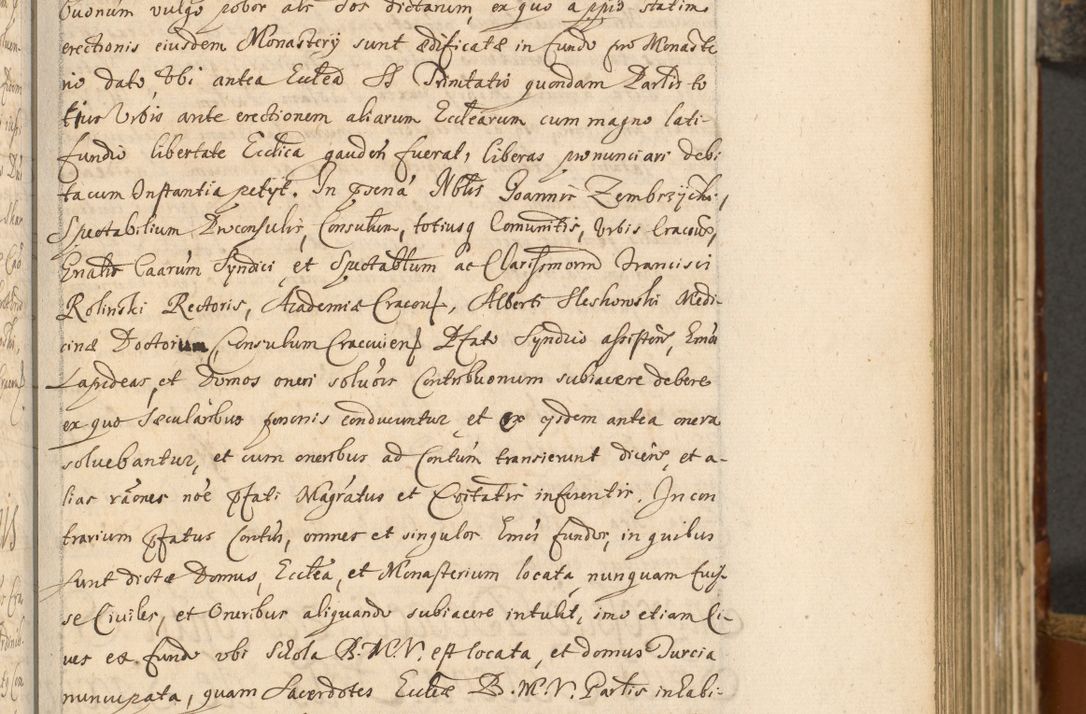 buonum vulgo pobor alr dos dictarum, ex quo a ppio statim
erectionis eiusdem Monastery sunt ædificatæ in fundo pro Monaste
rio dato, Vbi antea Ecclea SS Trinitatis quondam Partis to
tius Vrbis ante erectionem aliarum Ecclearum cum magno lati-
fundio libertate Ecclica gauden fuerat, liberas pronunciari debi
ta cum Instantia petyt. In psena Nblis Joannis Zembrzycki,
Spectabilium Proconsulis, Consulum, totiusq Comunitis, Vrbis Cracoue,
Syndici, et Spectablium ac Clarissmorm Francisci
Rolinski Rectoris, Academiæ Cracou, Alberti Sleskowski Medi
cinæ Doctorum, Consulum Cracouien Pfato Syndico assisten,
Lapideas, et Domos oneri solu Contribuonum subiacere debere
ex quo Sæcularibus psonis conducuntur, et ex ijsdem antea onera
soluebantur, et cum oneribus ad Contum transierunt dicens, et a-
lias raones noe pfati Magratus et Ciuitatis inferentis. In con
trarium pfatus Contus, omnes et singulos fundos, in quibus
sunt dictæ Domus, Ecclea, et Monasterium locata, nunquam fuis-
se Ciuiles, et Oneribus aliquando subiacere intulit, imo etiam Ci-
ues ex fundo vbi Schola B.M.V. est locata, et domus Turcia
nuncupata, quam Sacerdotes Eccleæ B.M.V. Partis inhabi-